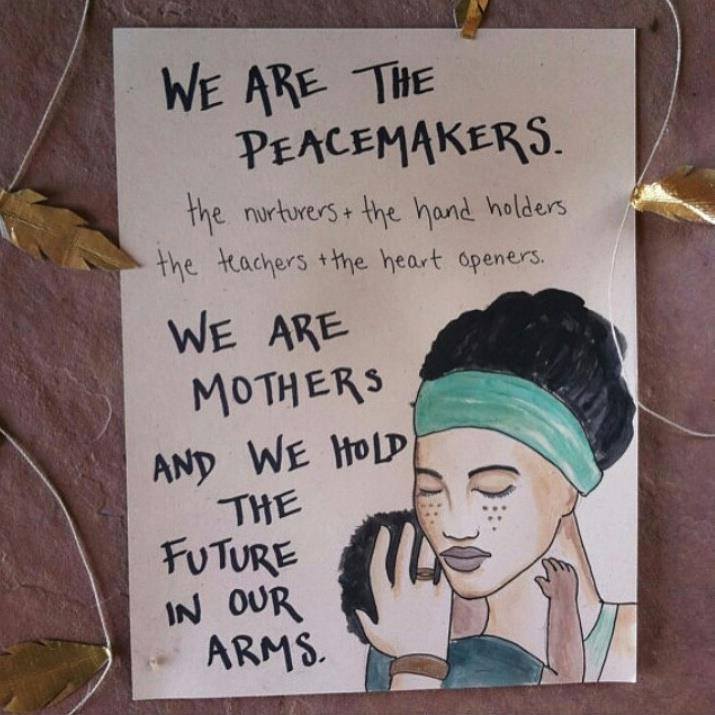 WE ARE THE
PEACEMAKERS.
the nurturers + the hand holders
the teachers + the heart openers.
WE ARE
MOTHERS
AND WE HOLD
THE
FUTURE
IN OUR
ARMS.